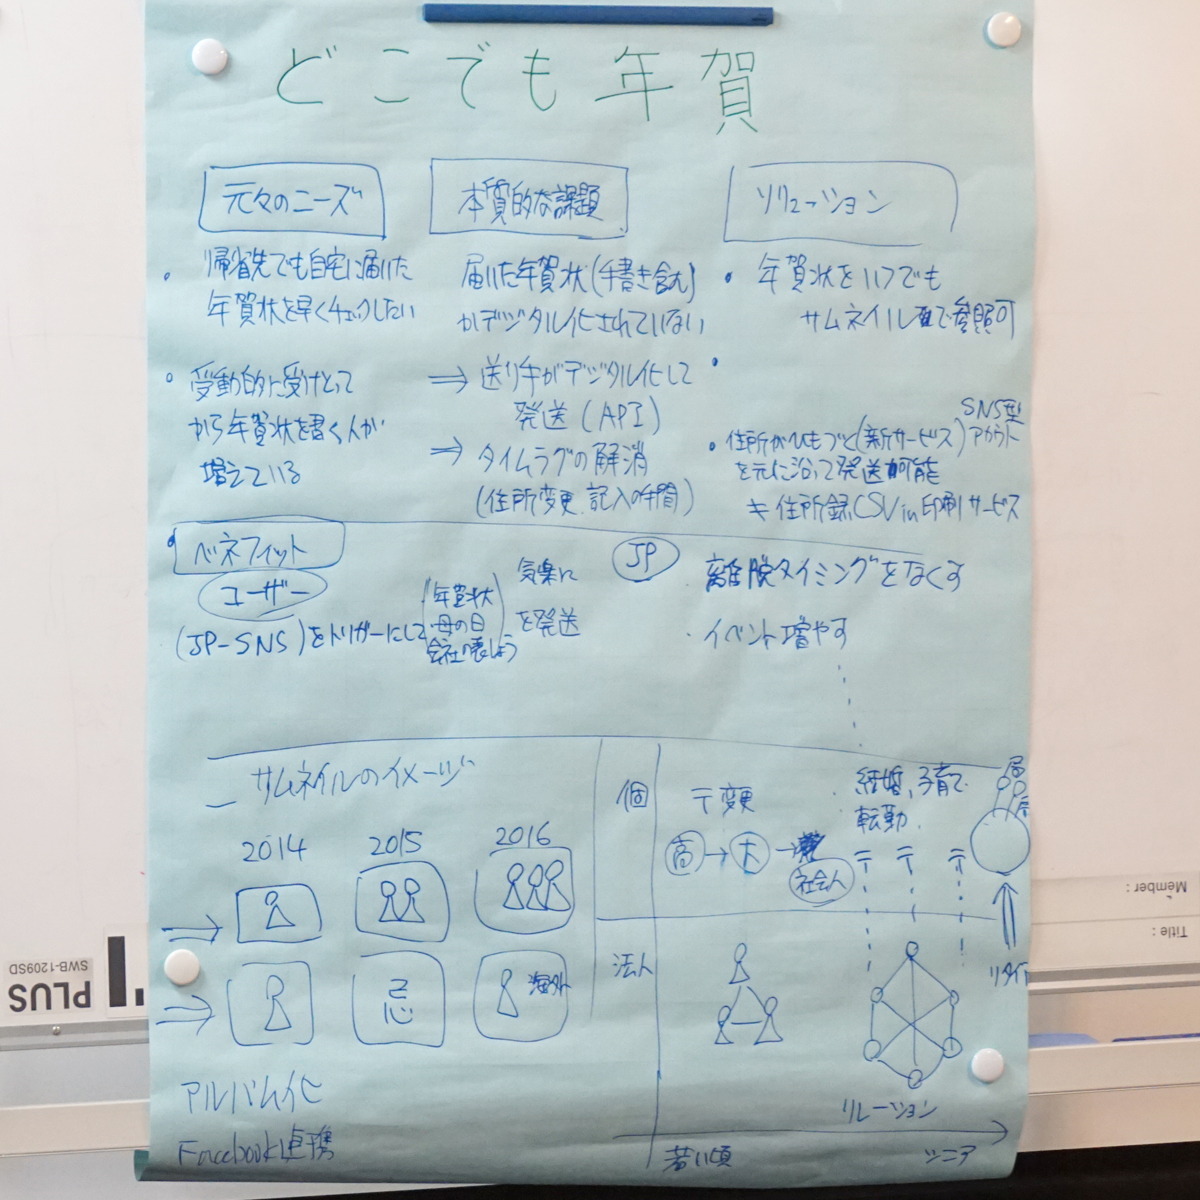 どこでも年賀
元々のニーズ
・帰省先でも自宅に届いた
年賀状を早くチェックしたい
・受動的に受けとって
から年賀状を書く人が
増えている
本質的な課題
届いた年賀状(手書き含む)
がデジタル化されていない
⇒ 送り手がデジタル化して
発送(API)
⇒ タイムラグの解消
(住所変更、記入の手間)
ソリューション
・年賀状をいつでも
サムネイルで参照可
・
SNS型
・住所がひもづく(新サービス)アカウント
を元に沿って発送可能
キ 住所録CSV in 印刷サービス
・ベネフィット
ユーザー
(JP-SNS)をトリガーにして
年賀状
母の日
気楽に
を発送
JP
離脱タイミングをなくす
・イベント増やす
サムネイルのイメージ
2014
2015
2016
忌
海外
アルバム化
Facebook連携
個
〒変更
高→大→
社会人
結婚、子育て
転勤
〒 〒 〒
法人
リタイア
リレーション
若い頃
シニア
Member :
Title :
PLUS
SWB-1209SD